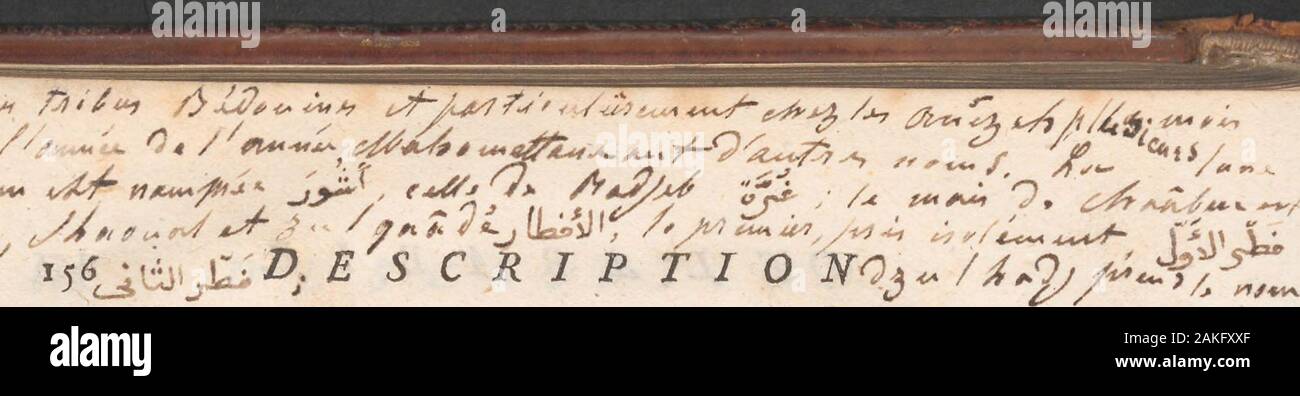 tribus Bédouines et particulièrement chez les plusieurs mois
l'année de l'année Mahometane ont d'autres noms. La lune
est nommée أشور, celle de Radjeb غُرَّة; le mois de Chaâban est
, Chaoual et zul qaâdé الأفطار, le premier, pris isolément, فطر الأوّل
156 فطر الثانى; DESCRIPTION dzu l hadj prend le nom
alamy
Image ID: 2AKFXXF
www.alamy.com